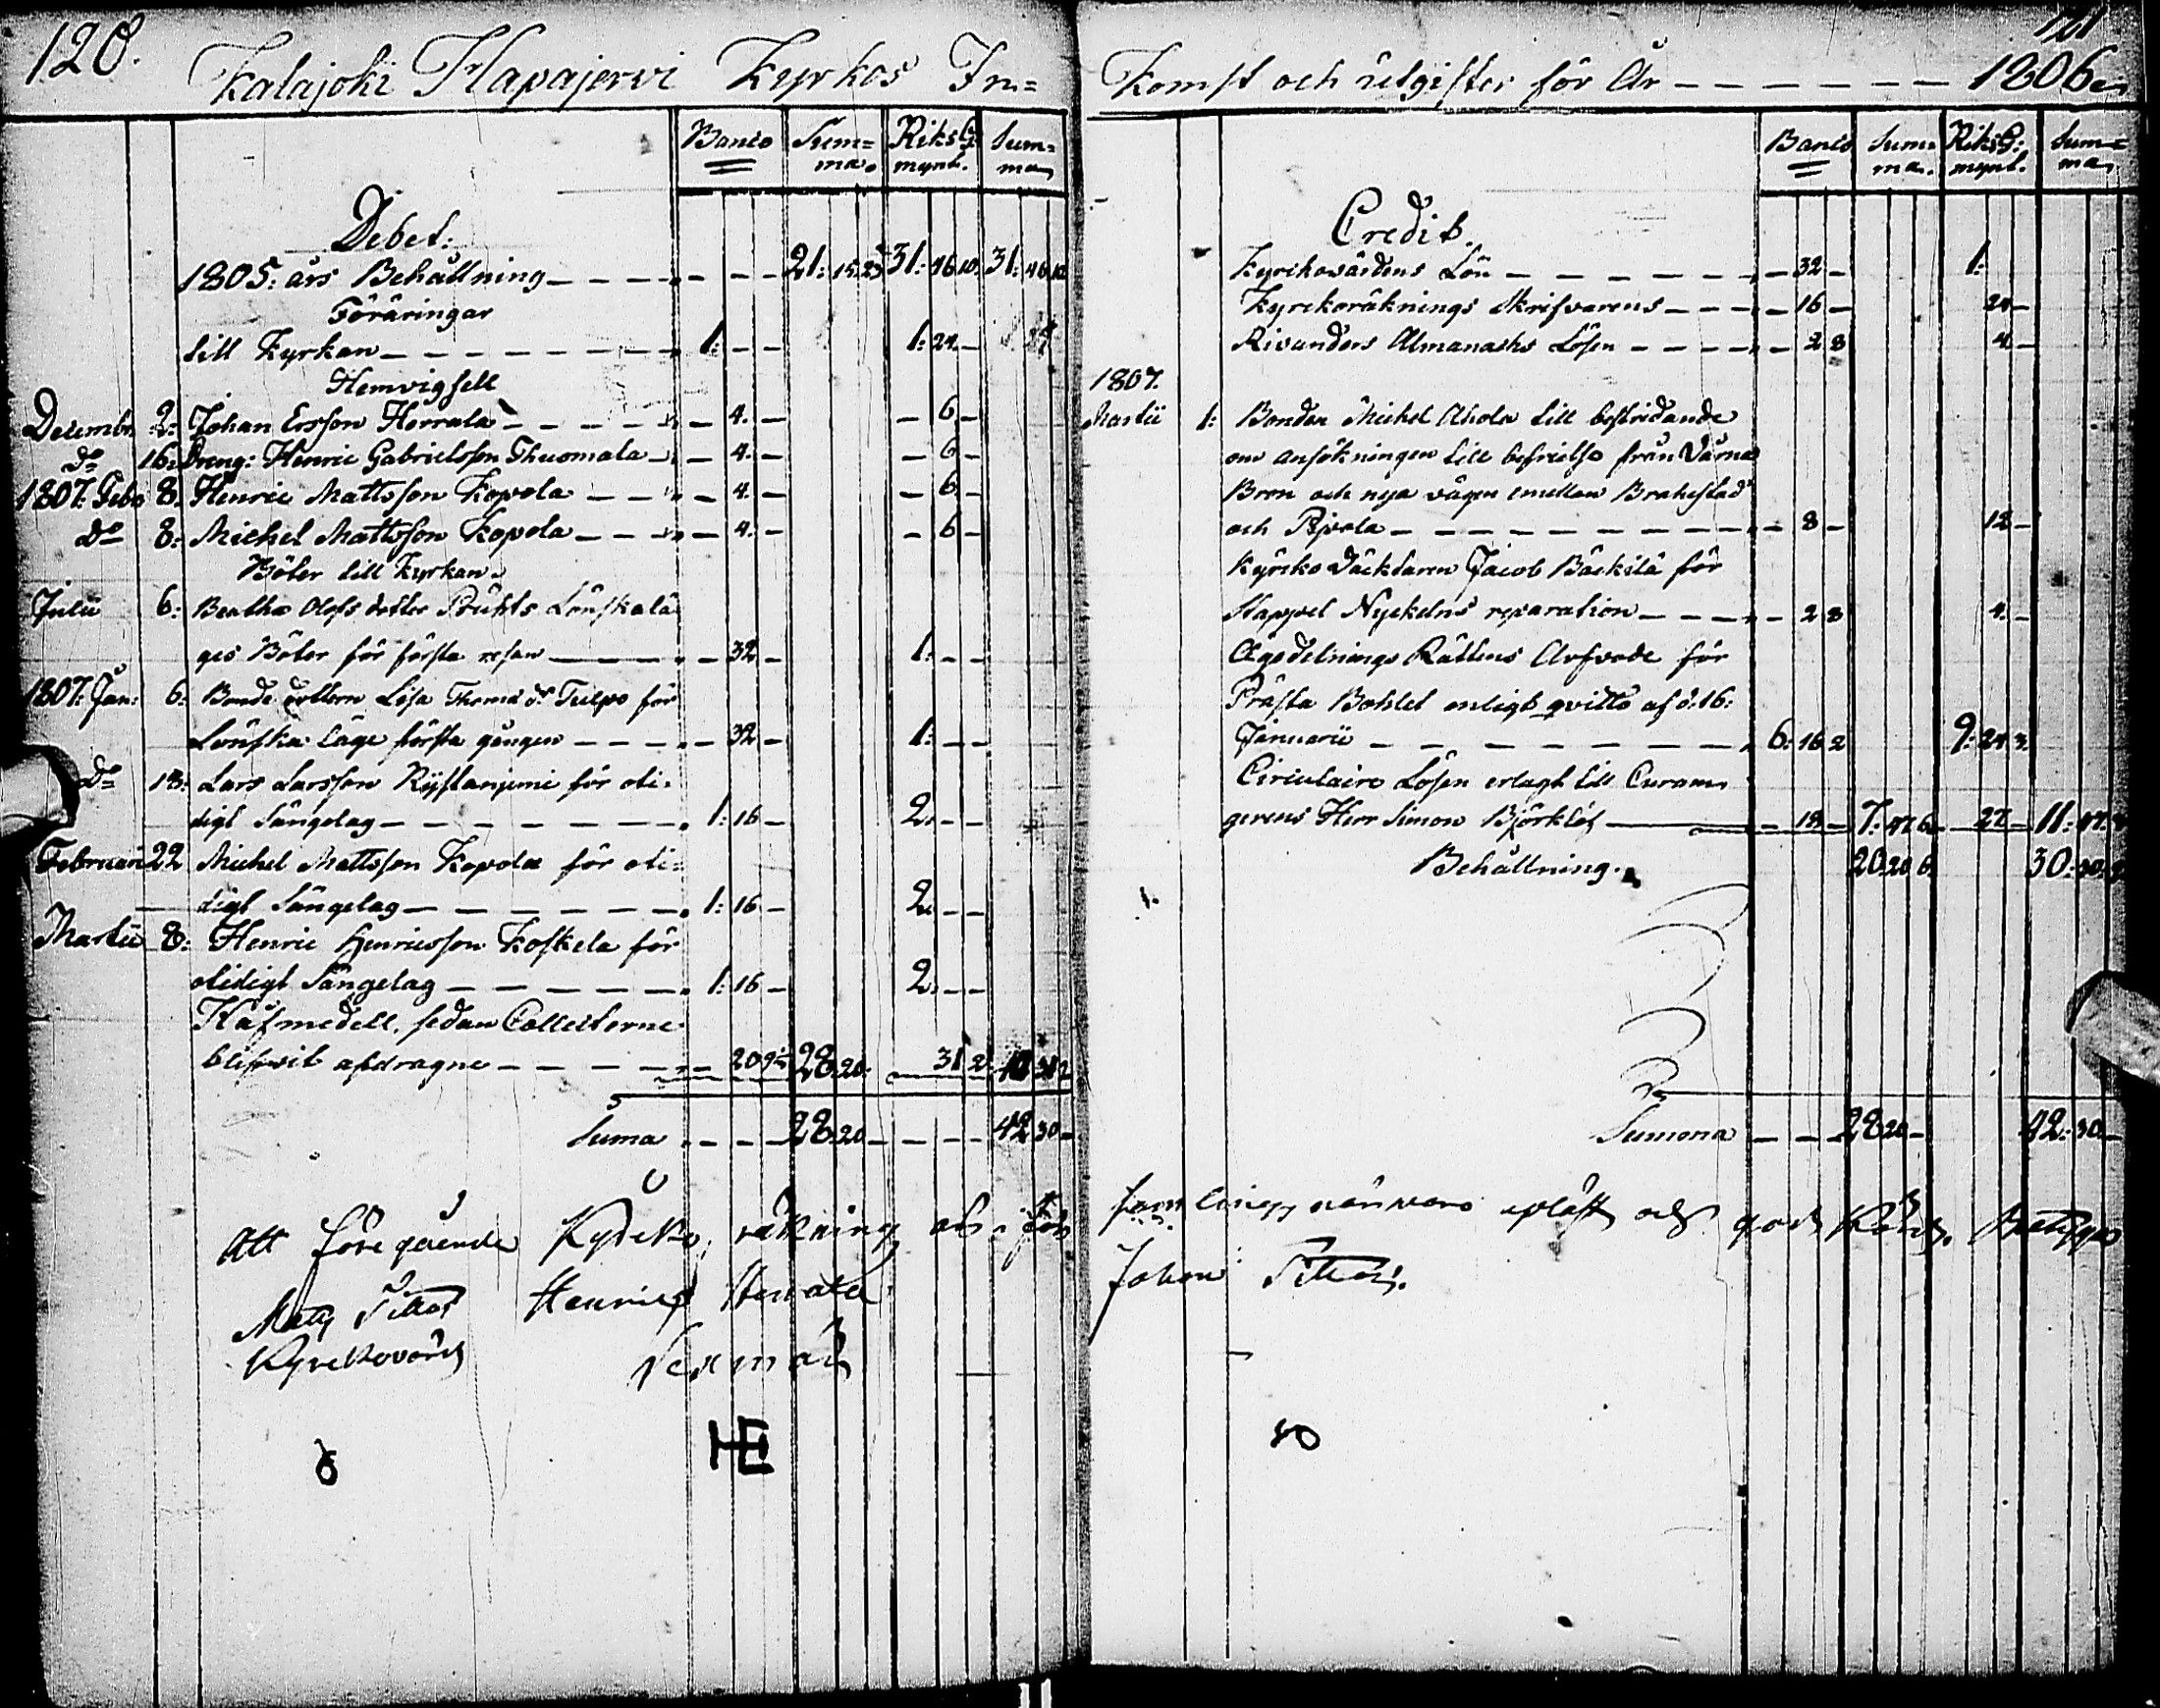 120.
Kalajoki Hapajervi Kyrkos In=
Banco Sum=ma. Riks G: mynt. Sum=ma
Debet:
1805: års Behållning 21: 31: 46. 10. 31: 46
Föräringar
till Kyrkan 1: - - 1: 24. -
Hemvigsell
Decembr. 2: Johan Ersson Herrala - 4. - - 6 -
do 16: Dreng: Henric Gabrielsson Thuomala - 4. - - 6 -
1807. Febr 8: Henric Mattsson Kopola - 4. - - 6 -
do 8: Michel Mattsson Kopola - 4. - - 6 -
Böter till Kyrkan.
Julii 6: Beatha Olofs dotter Lönskalä
ges Böter för första resan - 32 - 1: - -
1807. Jan: 6: Bonde dottern Lisa Thomæ dr för
Lönska Läge första gången - 32 - 1: - -
do 13: Lars Larsson för oti=
digt Sängelag 1: 16 - 2. - -
Februari 22 Michel Mattsson Kopola för oti=
digt Sängelag 1: 16 - 2. - -
Martii 8: Henric Henricsson Koskela för
otidigt Sängelag 1: 16 - 2. - -
Håfmedell, sedan Collecterne
blifwit afdragne - 20 28. 20. 31 2
Suma 28. 20 - 42 30 -
Att föregående Kyrko räkning är i
Matts
Kyrekovärd
Henric Herrala
Sexman
HE
121
Komst och utgifter för År 1806
Banco Sum=ma. Riks G: mynt. Sum=ma
Credit.
Kyrkovärdens Lön - 32 - 1:
Kyrckoräknings Skrifvarens - 16 - 24 -
Almanachs Lösen - 2 8 4 -
1807.
Martii 1: Bonden Michel Ahola till bestridande
om ansökningen till befrielse från
Bron och nya vägen emellan Brahestad
och - 8 - 12 -
Kyrko Väcktaren Jacob Bäckilä för
Nyckelns reparation - 2 8 4. -
Ägodelnings Rättens Arfvode för
Prästa Bohlet enligt qvitto af d: 16:
Januarii 6: 16 2 9: 24 3
Circulaire Lösen erlagt till
gerens Herr Simon Björklöf - 18 - 7: 47 6 - 27 - 11: 47.
Behållning. 20: 20 6 30: 30:
Summa 28 20 - 42: 30 -
närvaro upläst och god
Johan